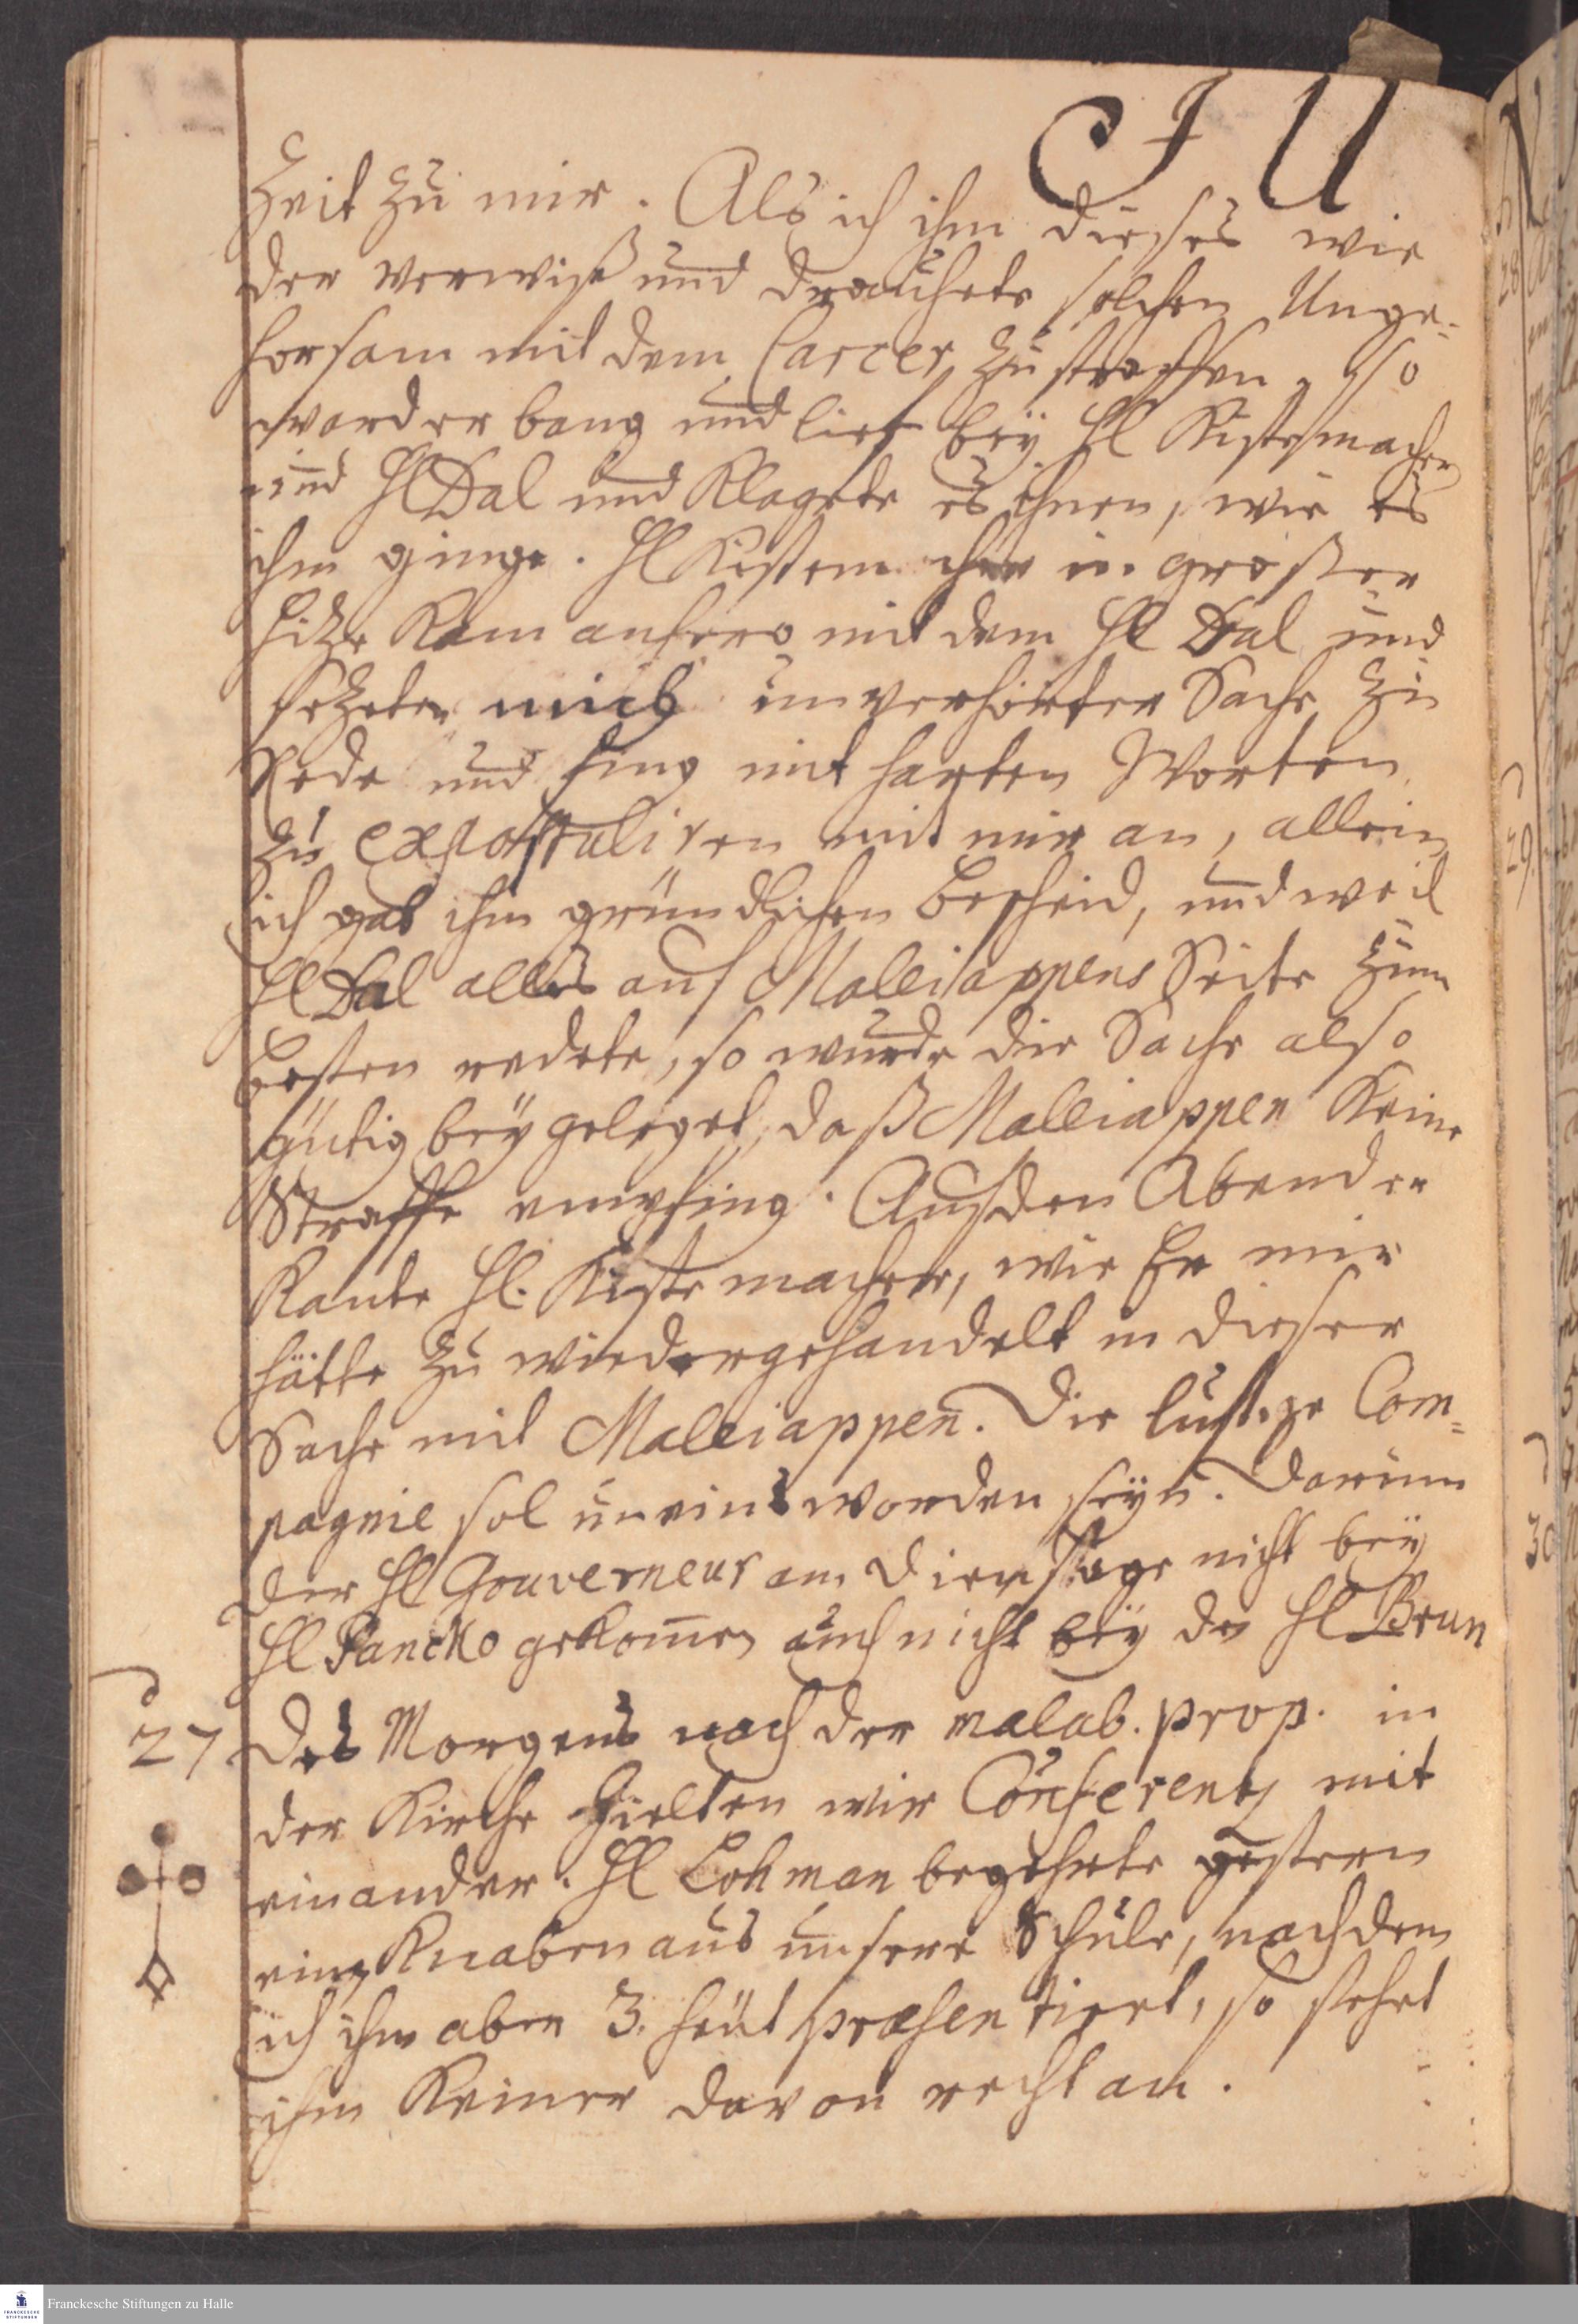 JU
Zeit zu mir. Als ich ihm dieses wie
der verwiß und drauhete solchen Unge=
horsam mit dem Carcer zu straffen, so
ward er bang und lief beÿ Hl Kistemacher
und Hl Dal und Klagete es ihnen, wie es
ihm ginge. Hl Kistemacher in großer
Hitze Kam anhero mit dem Hl Dal und
sezete mich unverhörter Sache zu
Rede und fing mit harten Worten
zu expostuliren mit mir an, allein
ich gab ihm gründlichen Bescheid, und weil
Hl Dal alles auf Malleiappens Seite zum
besten redete, so wurde die Sache also
gütig beÿgeleget, daß Malleiappen Keine
Straffe empfing. Auf den Abend er
Kante Hl. Kistemacher, wie Er mir
hätte zu wiedergehandelt in dieser
Sache mit Malleiappen. Die lustige Com=
pagnie sol uneins worden seÿn. Darum
der Hl Gouverneur am Dienstage nicht beÿ
Hl Panck gekomen auch nicht beÿ de Hl Brun
27 Des Morgens nach der malab. prop. in
der Kirche hielten wir Conferentz mit
einander. Hl Lohman begehrte gestern
eine Knaben aus unsere Schule, nachdem
ich ihm aber 3. heut præsentiert, so stehet
ihm Keiner davon recht an.
28
29
30
Franckesche Stiftungen zu Halle
FRANCKESCHE
STIFTUNGEN